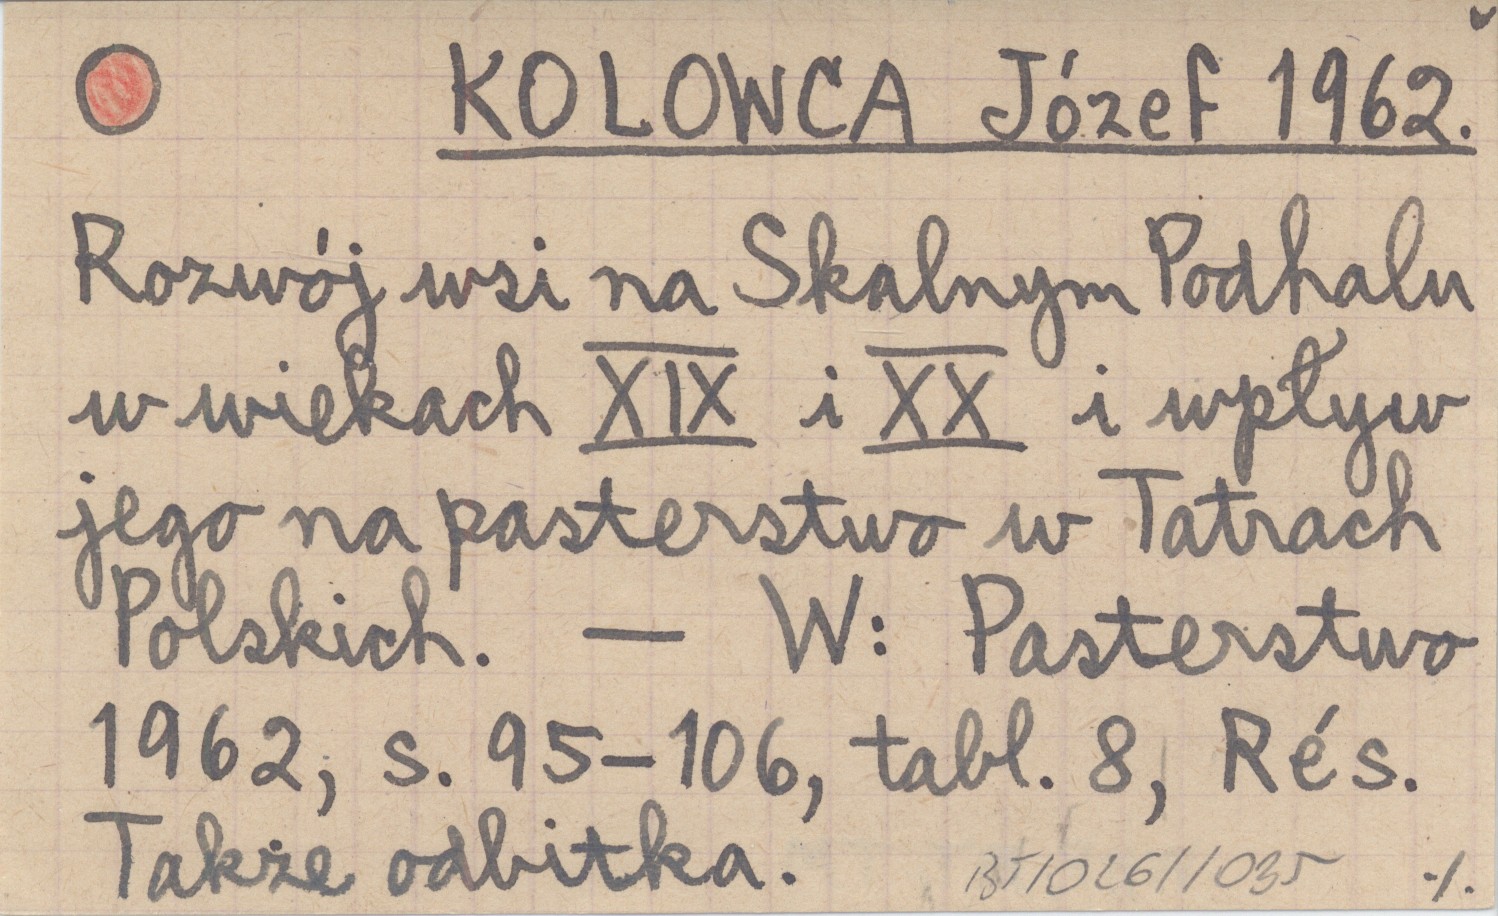 KOLOWCA Józef 1962.
Rozwój wsi na Skalnym Podhalu
w wiekach XIX i XX i wpływ
jego na pasterstwo w Tatrach
Polskich. — W: Pasterstwo
1962, s. 95–106, tabl. 8, Rés.
Także odbitka.
./.